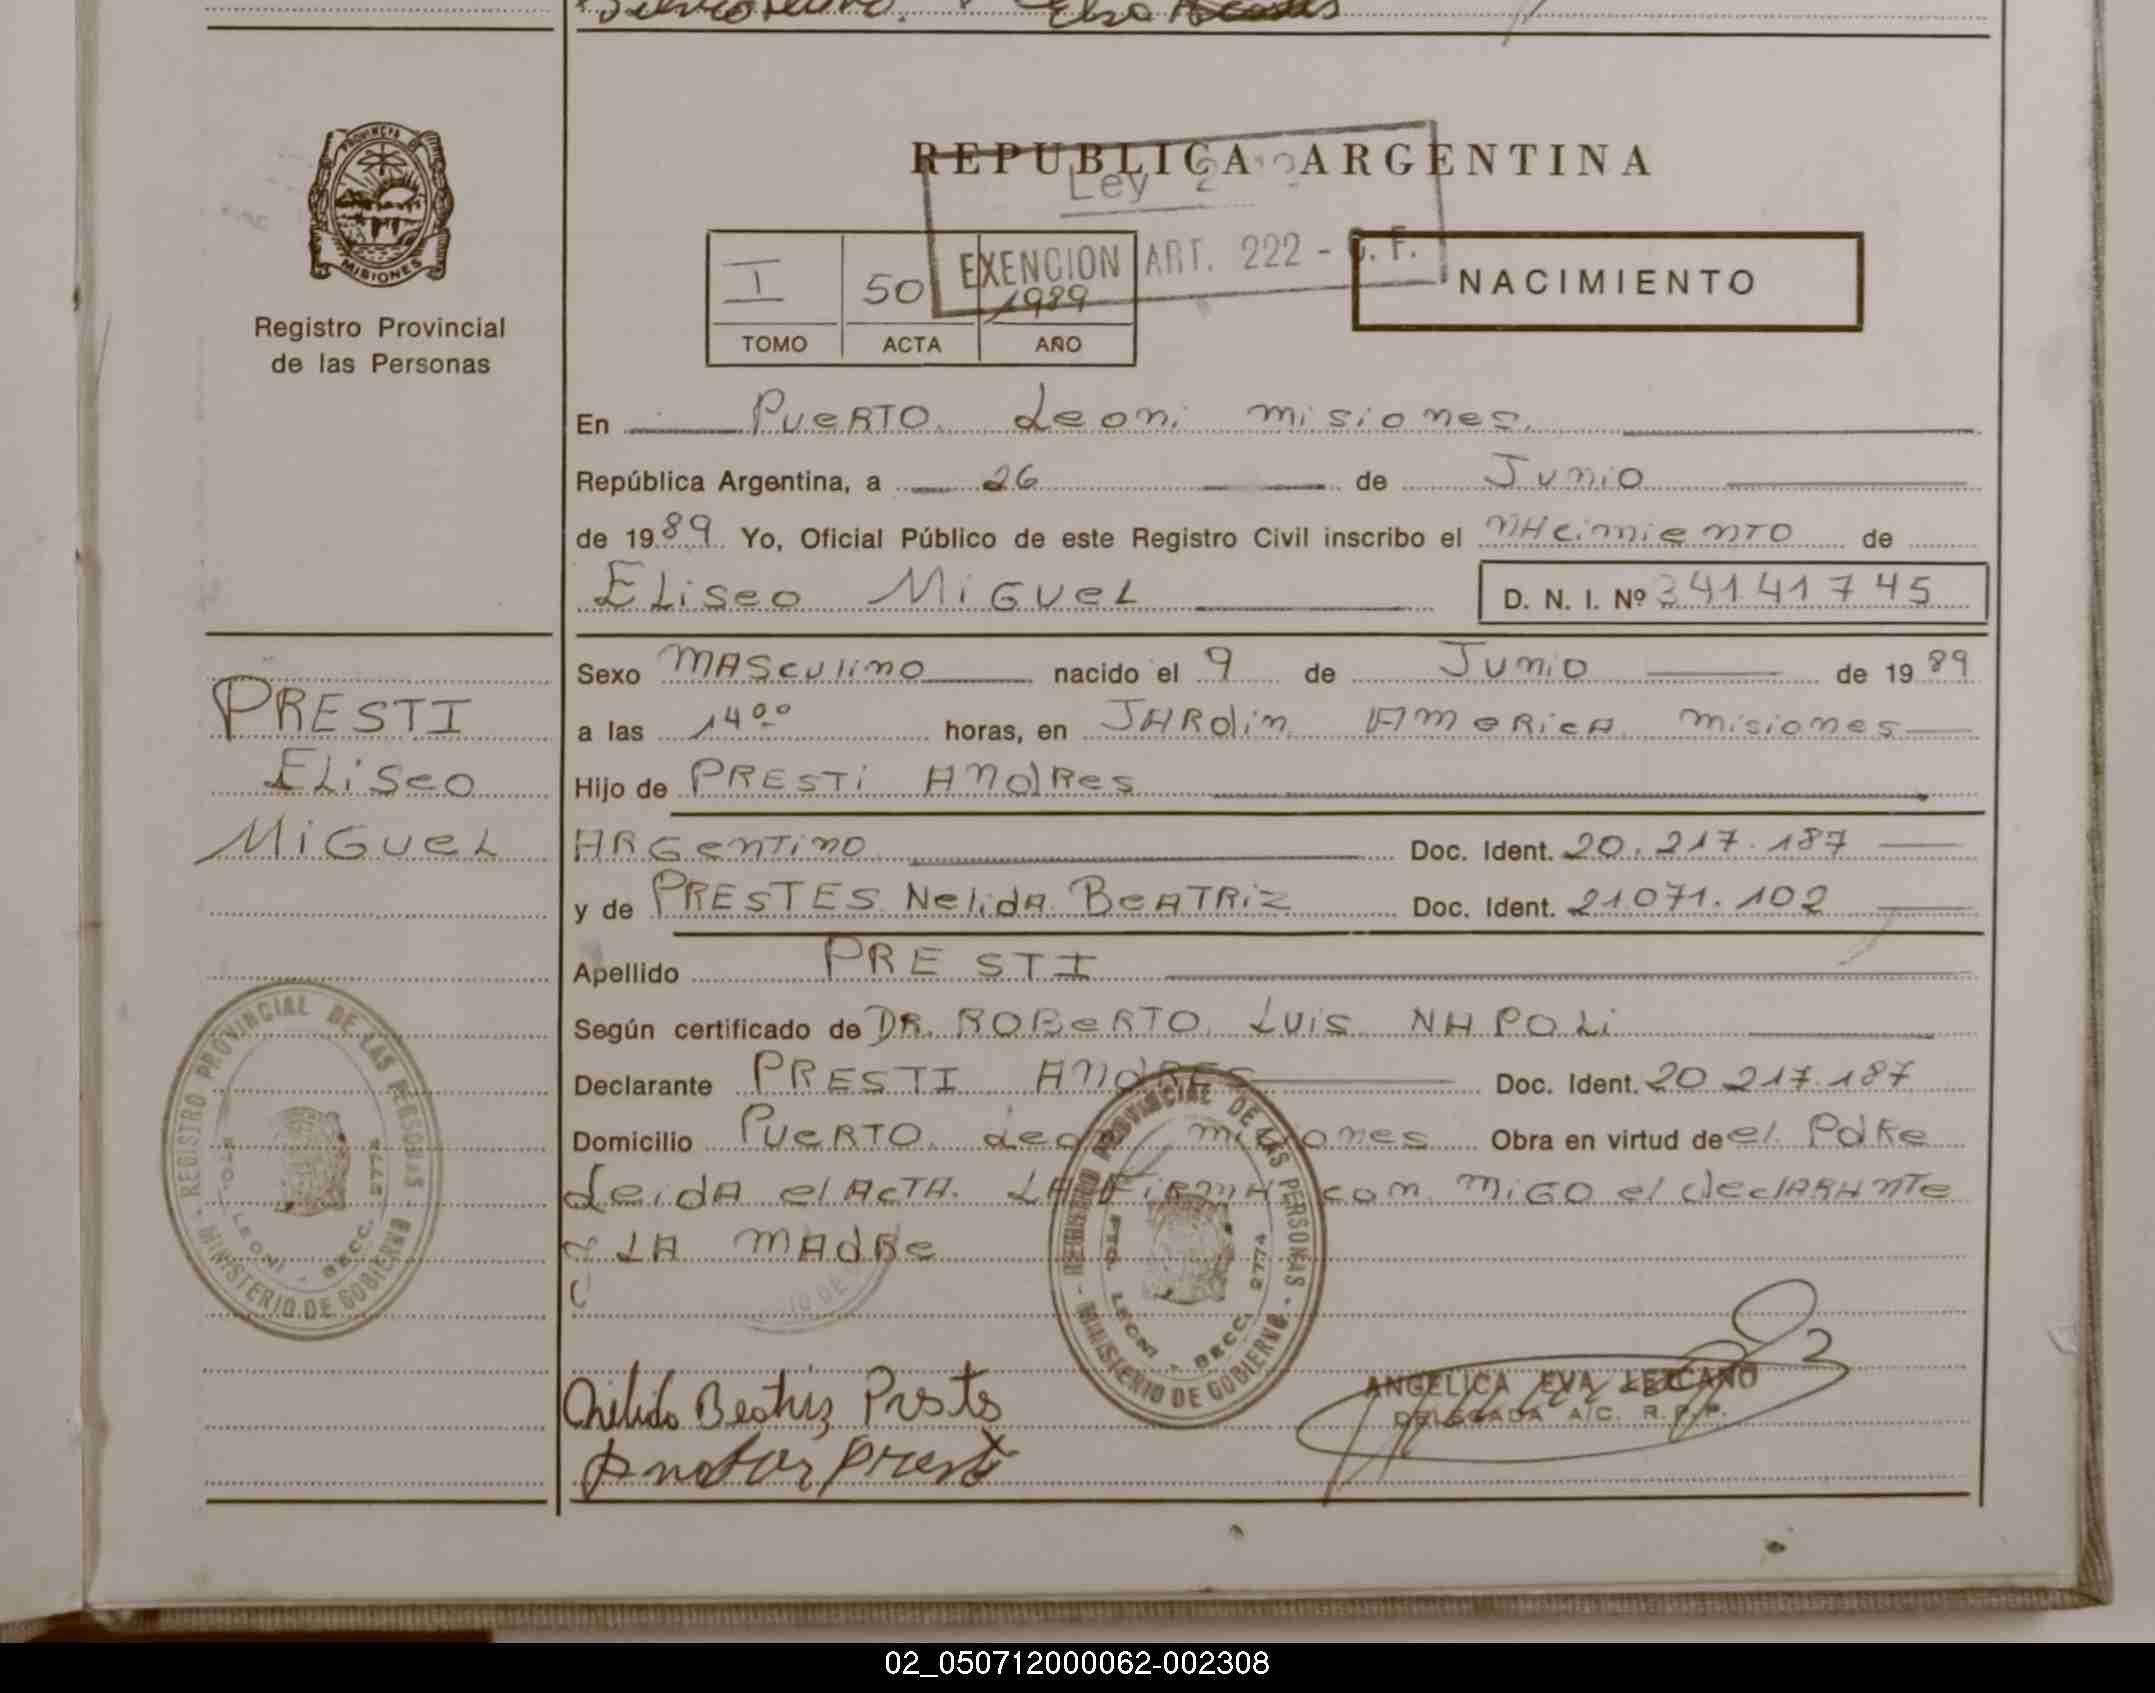 PROVINCIA
MISIONES
Registro Provincial
de las Personas
REPUBLICA ARGENTINA
Ley
EXENCION ART. 222 - C. F.
I 50 1989
TOMO ACTA AÑO
NACIMIENTO
En Puerto Leoni misiones
República Argentina, a 26 de Junio
de 1989 Yo, Oficial Público de este Registro Civil inscribo el nacimiento de
Eliseo Miguel D. N. I. Nº 34141745
Sexo masculino nacido el 9 de Junio de 1989
a las 14 00 horas, en Jardin America misiones
Hijo de PRESTi Andres
Argentino Doc. Ident. 20.217.187
y de PRESTES Nelida Beatriz Doc. Ident. 21071.102
Apellido PRESTI
Según certificado de DR. Roberto Luis Napoli
Declarante PRESTI Andres Doc. Ident. 20 217.187
Domicilio Puerto Leoni misiones Obra en virtud de el Padre
Leida el Acta La Firma con migo el declarante
y LA madre
PRESTI
Eliseo
Miguel
REGISTRO PROVINCIAL DE LAS PERSONAS
MINISTERIO DE GOBIERNO
PTO. LEONI - SECC. 2774
REGISTRO PROVINCIAL DE LAS PERSONAS
MINISTERIO DE GOBIERNO
PTO. LEONI - SECC. 2774
Nelida Beatriz Prests
ANGELICA EVA LEZCANO
DELEGADA A/C. R.P.P.
02_050712000062-002308